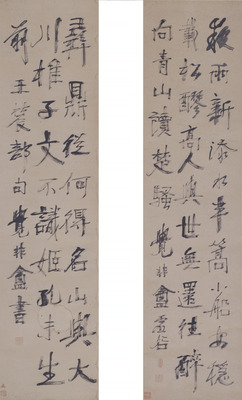 夜雨新添水半篙小船安穩
載松醪高人與世無還往醉
向青山讀楚騷 覺非盦虛谷
彝鼎從何得名山與大
川椎子文不識姬孔未生
前 王句 覺非盦書